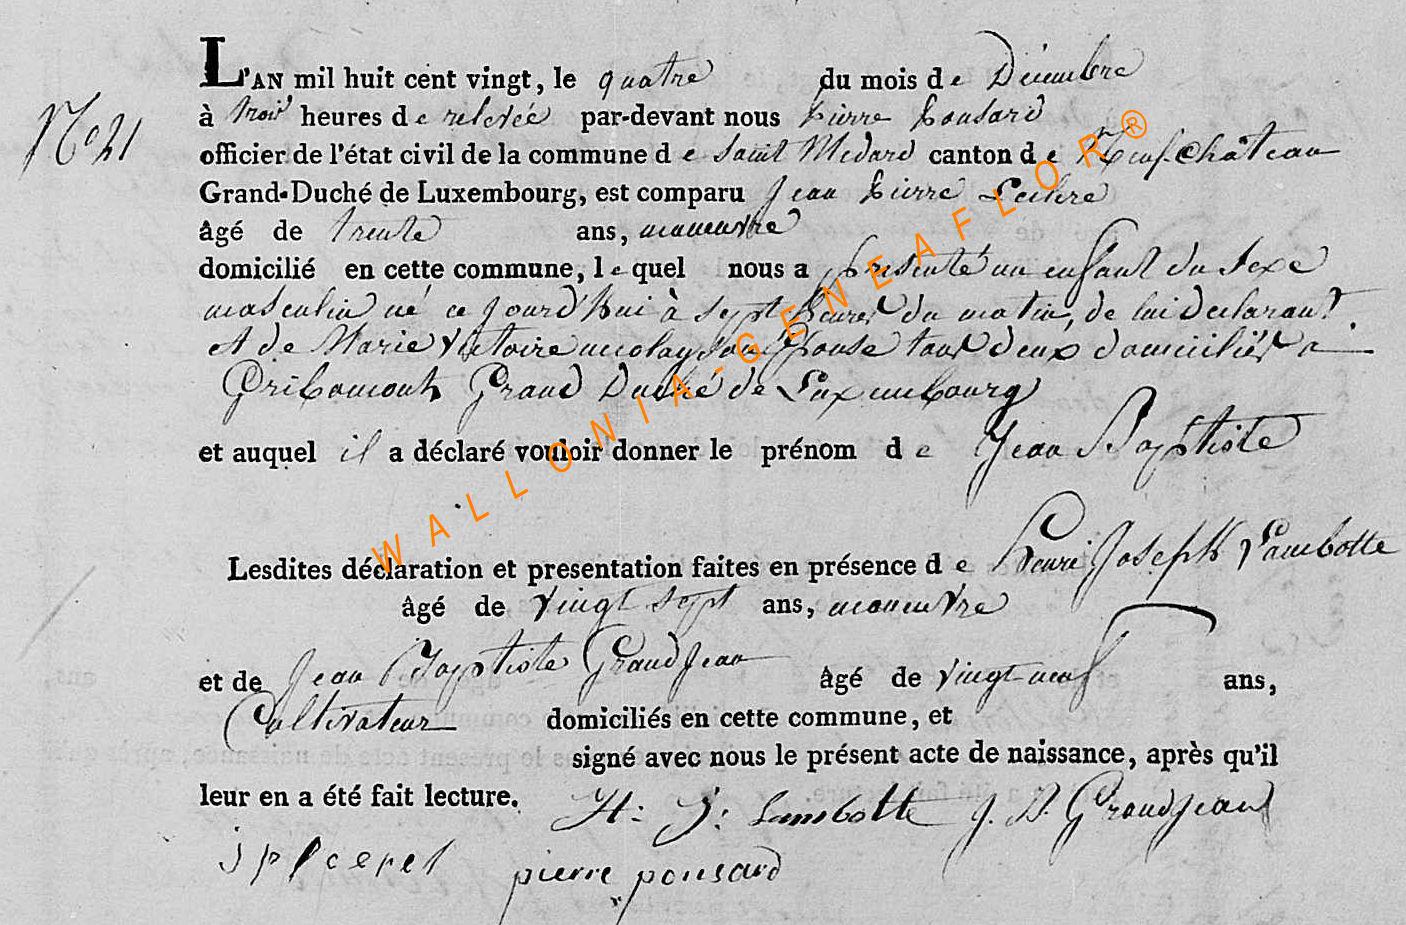 L'AN mil huit cent vingt, le quatre du mois de Décembre
No 21
à trois heures de relevée par-devant nous pierre pousard
officier de l'état civil de la commune de Saint Medard canton de Neufchâteau
Grand-Duché de Luxembourg, est comparu Jean pierre
âgé de trente ans, manœuvre
domicilié en cette commune, lequel nous a présenté un enfant du Sexe
masculin né ce jourd'hui à sept heures du matin, de lui déclarant
et de Marie Victoire nicolay son Épouse tous deux domiciliés a
Gribomont Grand Duché de Luxembourg
et auquel il a déclaré vouloir donner le prénom de Jean Baptiste
Lesdites déclaration et presentation faites en présence de Henri Joseph Lambotte
âgé de vingt sept ans, manœuvre
et de Jean Baptiste Grandjean âgé de vingt neuf ans,
Cultivateur domiciliés en cette commune, et
signé avec nous le présent acte de naissance, après qu'il
leur en a été fait lecture. H: J: Lambotte J. B. Grandjean
pierre pousard
WALLONIA-GENEAFLOR®